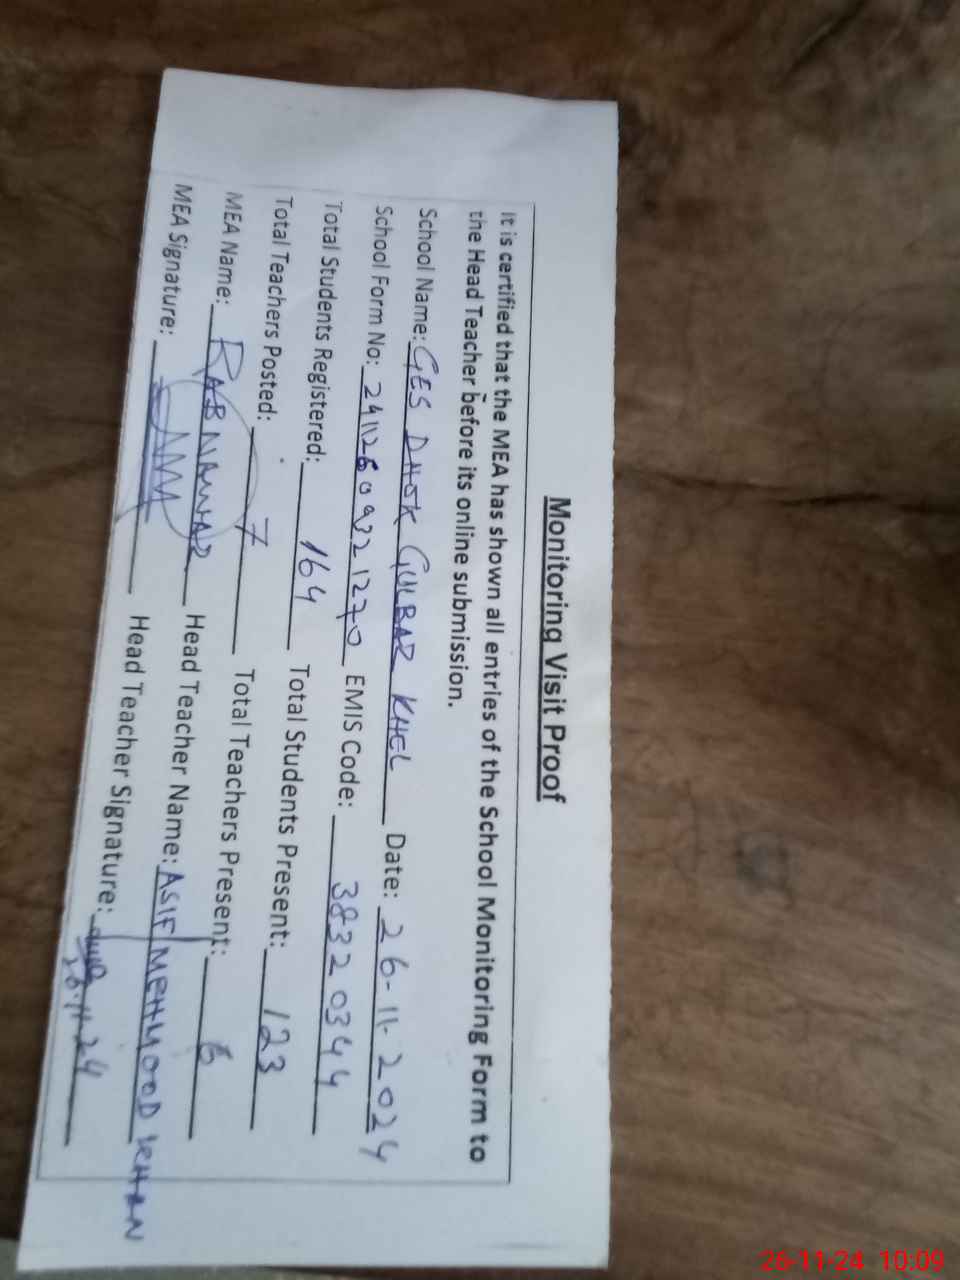 Monitoring Visit Proof
It is certified that the MEA has shown all entries of the School Monitoring Form to
the Head Teacher before its online submission.
School Name: GES DHOK GULBAZ KHEL Date: 26-11-2024
School Form No: 24112609321270 EMIS Code: 38320344
Total Students Registered: 164 Total Students Present: 123
Total Teachers Posted: 7 Total Teachers Present: 6
MEA Name: RAB NAWAZ Head Teacher Name: ASIF MEHMOOD KHAN
MEA Signature: Head Teacher Signature:
26-11-24 10:09